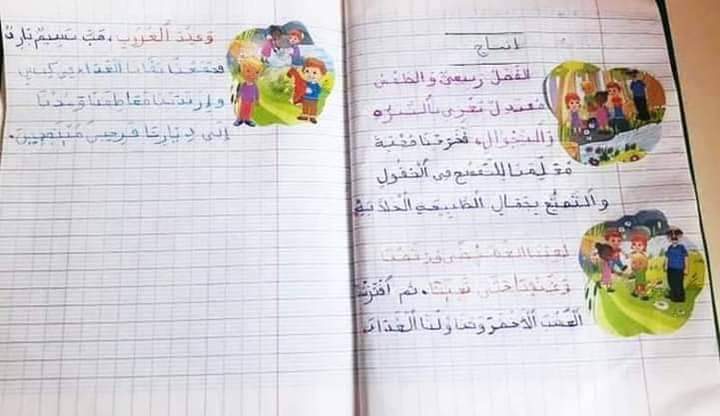 إنتاج
الفصل ربيعي والطقس
معتدل يغري بالنزهة
والتجوال، فخرجنا رفقة
معلمنا للتفسح في الحقول
والتمتع بجمال الطبيعة الخلابة
لعبنا الغميضى ورقصنا
وغنينا حتى تعبنا، ثم افترشنا
العشب الأخضر وتناولنا الغداء.
وعند الغروب، هب نسيم بارد
فجمعنا بقايا الغداء في كيس
وارتدينا معاطفنا وعدنا
إلى ديارنا فرحين مبتهجين.